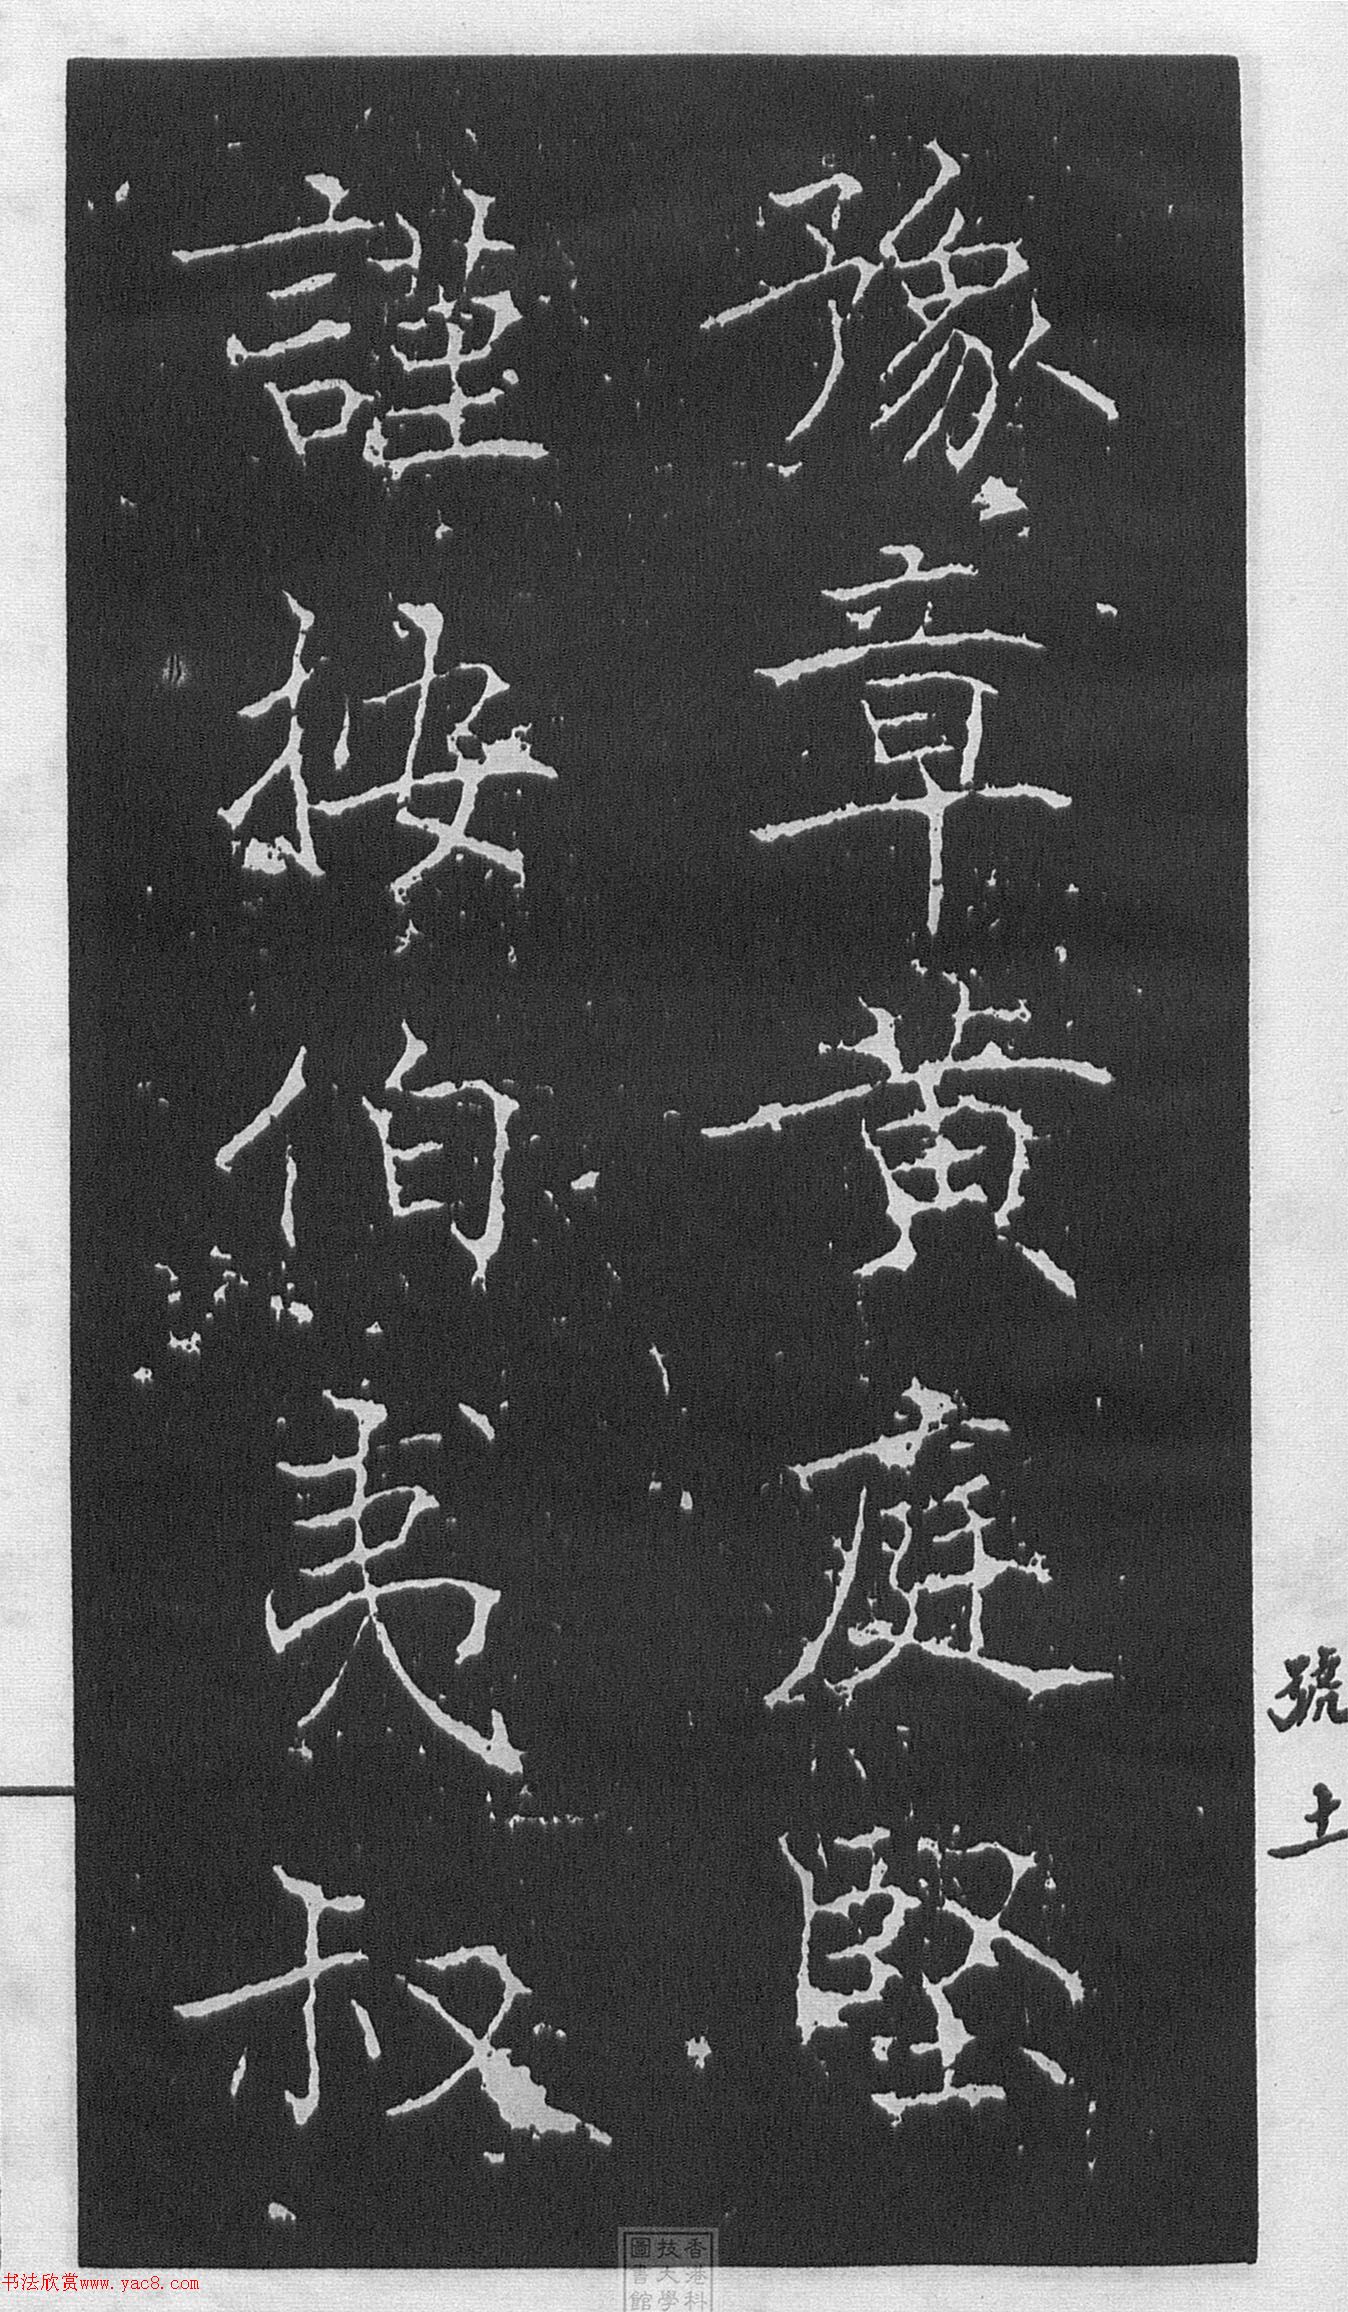 豫章黄庭堅
謹按伯夷叔
號土
书法欣赏www.yac8.com
香港科
技大學
圖書館